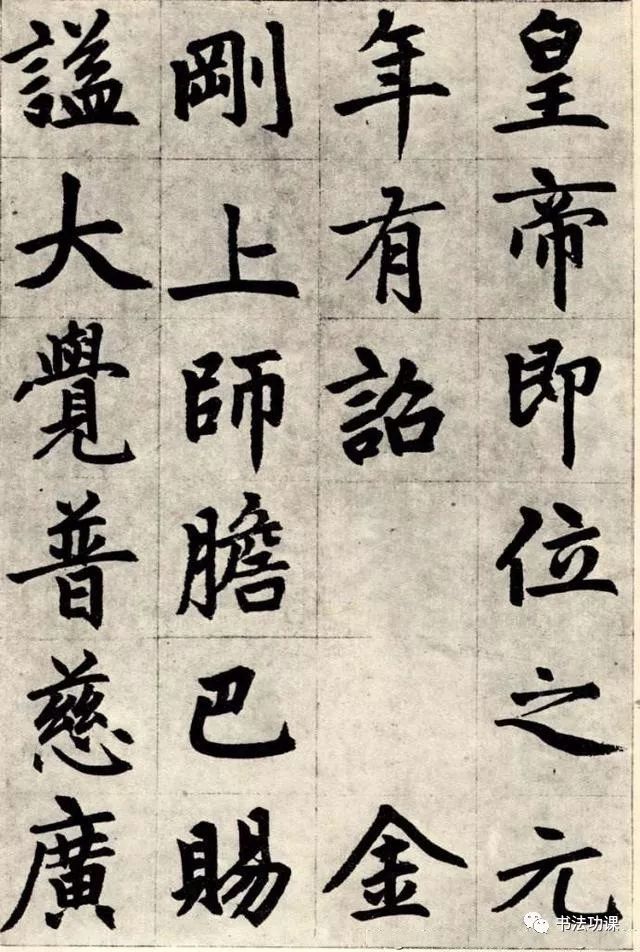 皇帝即位之元
年有詔金
剛上師膽巴賜
謚大覺普慈廣
书法功课